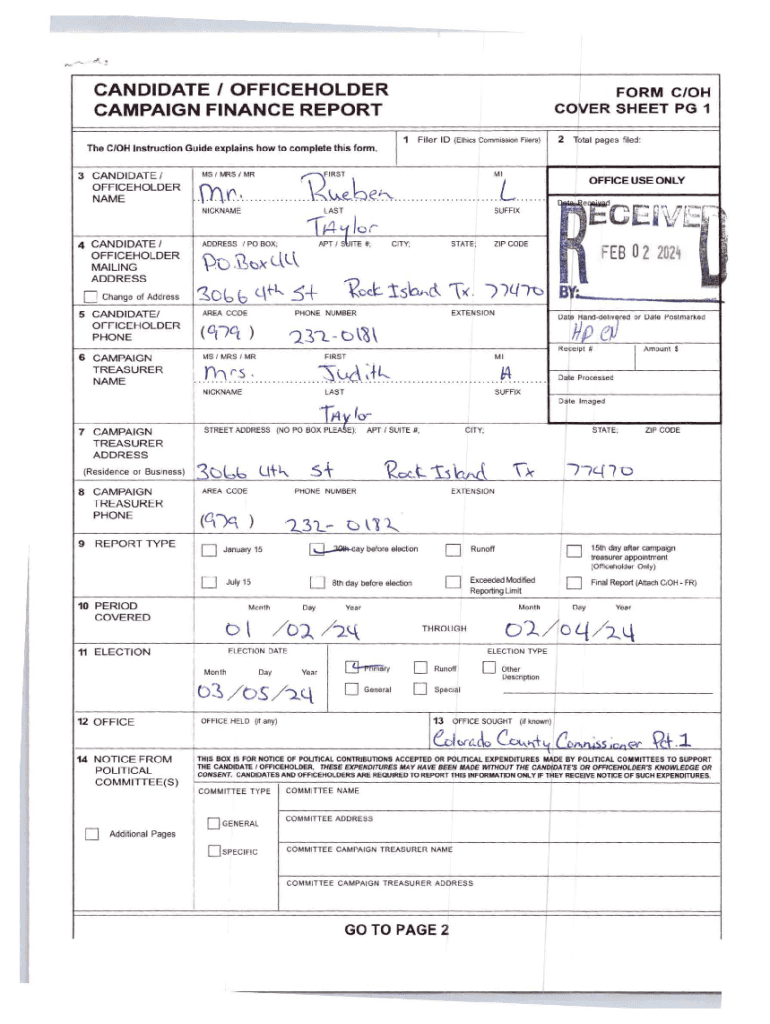 CANDIDATE / OFFICEHOLDER
CAMPAIGN FINANCE REPORT
FORM C/OH
COVER SHEET PG 1
The C/OH Instruction Guide explains how to complete this form.
1 Filer ID (Ethics Commission Filers)
2 Total pages filed:
3 CANDIDATE / OFFICEHOLDER NAME
MS / MRS / MR FIRST MI
Mr. Rueben L
NICKNAME LAST SUFFIX
TAylor
OFFICE USE ONLY
Date Received
RECEIVED
FEB 02 2024
BY:
4 CANDIDATE / OFFICEHOLDER MAILING ADDRESS
Change of Address
ADDRESS / PO BOX; APT / SUITE #; CITY; STATE; ZIP CODE
P.O. Box 44
3066 4th St Rock Island Tx. 77470
5 CANDIDATE/ OFFICEHOLDER PHONE
AREA CODE PHONE NUMBER EXTENSION
(979) 232-0181
Date Hand-delivered or Date Postmarked
HD
Receipt # Amount $
Date Processed
Date Imaged
6 CAMPAIGN TREASURER NAME
MS / MRS / MR FIRST MI
Mrs. Judith A
NICKNAME LAST SUFFIX
TAylor
7 CAMPAIGN TREASURER ADDRESS
(Residence or Business)
STREET ADDRESS (NO PO BOX PLEASE); APT / SUITE #; CITY; STATE; ZIP CODE
3066 4th St Rock Island Tx 77470
8 CAMPAIGN TREASURER PHONE
AREA CODE PHONE NUMBER EXTENSION
(979) 232-0182
9 REPORT TYPE
January 15
30th day before election
Runoff
15th day after campaign treasurer appointment (Officeholder Only)
July 15
8th day before election
Exceeded Modified Reporting Limit
Final Report (Attach C/OH - FR)
10 PERIOD COVERED
Month Day Year Month Day Year
01/02/24 THROUGH 02/04/24
11 ELECTION
ELECTION DATE ELECTION TYPE
Month Day Year
03/05/24
Primary
Runoff
Other Description
General
Special
12 OFFICE
OFFICE HELD (if any)
13 OFFICE SOUGHT (if known)
Colorado County Commissioner Pct. 1
14 NOTICE FROM POLITICAL COMMITTEE(S)
Additional Pages
THIS BOX IS FOR NOTICE OF POLITICAL CONTRIBUTIONS ACCEPTED OR POLITICAL EXPENDITURES MADE BY POLITICAL COMMITTEES TO SUPPORT
THE CANDIDATE / OFFICEHOLDER. THESE EXPENDITURES MAY HAVE BEEN MADE WITHOUT THE CANDIDATE'S OR OFFICEHOLDER'S KNOWLEDGE OR
CONSENT. CANDIDATES AND OFFICEHOLDERS ARE REQUIRED TO REPORT THIS INFORMATION ONLY IF THEY RECEIVE NOTICE OF SUCH EXPENDITURES.
COMMITTEE TYPE
GENERAL
SPECIFIC
COMMITTEE NAME
COMMITTEE ADDRESS
COMMITTEE CAMPAIGN TREASURER NAME
COMMITTEE CAMPAIGN TREASURER ADDRESS
GO TO PAGE 2